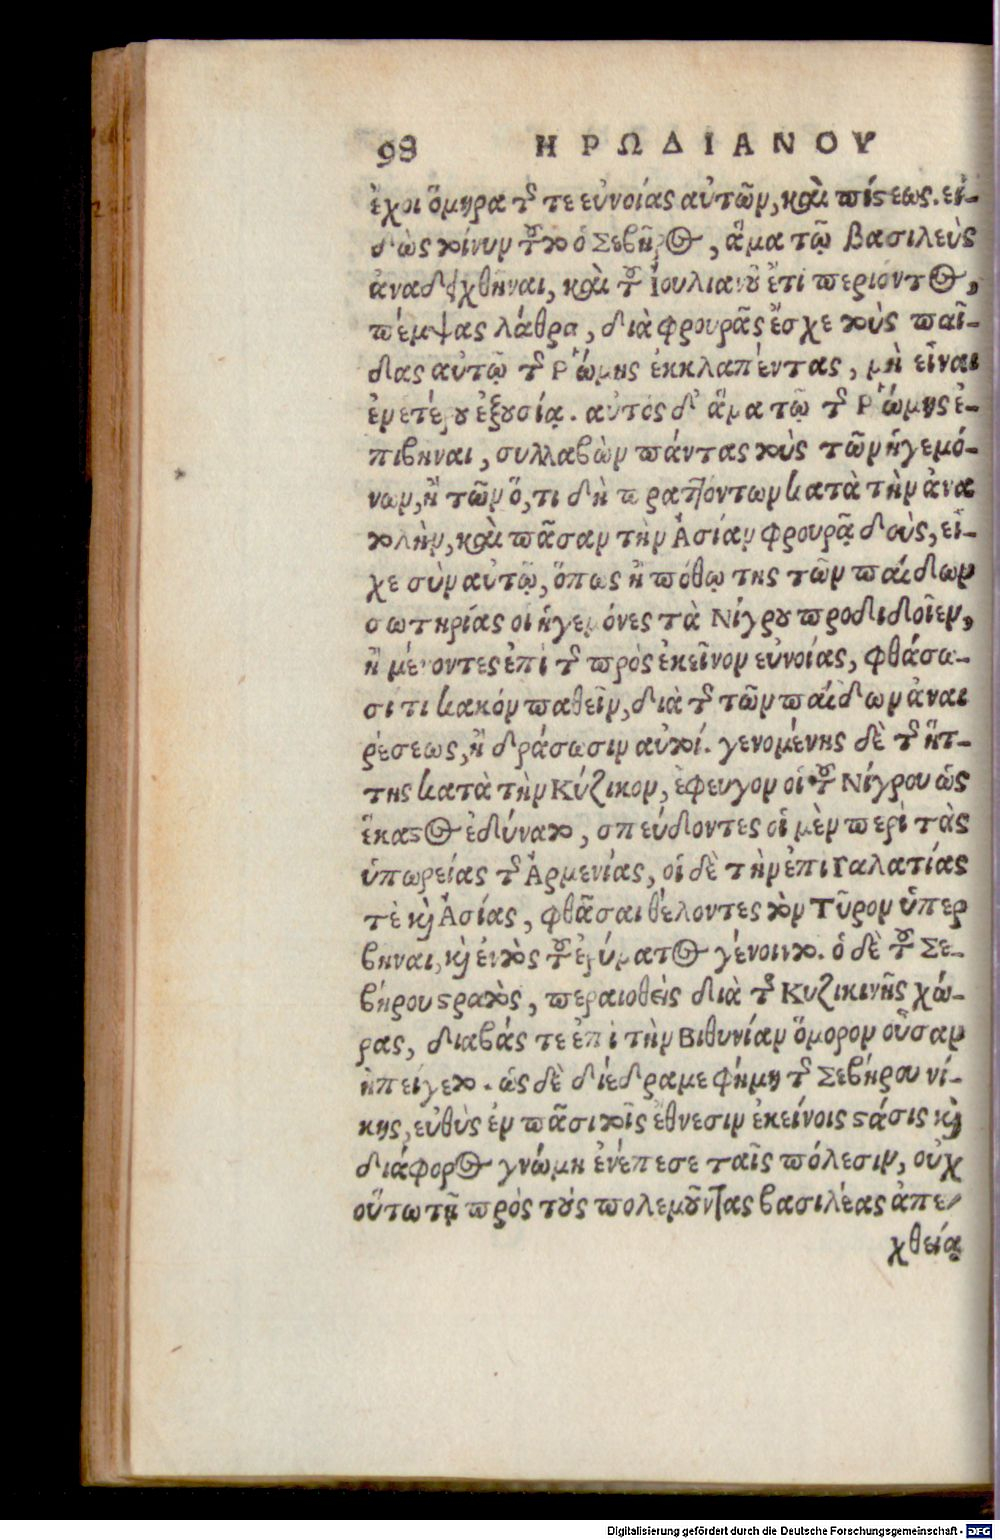 98 ΗΡΩΔΙΑΝΟΥ
ἔχοι ὅμηρα τῆς τε εὐνοίας αὐτῶν, καὶ πίστεως. εἰ-
δὼς τοίνυν τοῦτο ὁ Σεβῆρος, ἅμα τῷ βασιλεὺς
ἀναδειχθῆναι, καὶ τοῦ Ἰουλιανοῦ ἔτι περιόντος,
πέμψας λάθρα, διὰ φρουρᾶς ἔσχε τοὺς παῖ-
δας αὐτῷ τῆς Ῥώμης ἐκκλαπέντας, μὴ εἶναι
ἐν ἑτέρου ἐξουσίᾳ. αὐτὸς δ' ἅμα τῷ τῆς Ῥώμης ἐ-
πιβῆναι, συλλαβὼν πάντας τοὺς τῶν ἡγεμό-
νων, ἢ τῶν ὅ,τι δὴ πραττόντων κατὰ τὴν ἀνα
τολὴν, καὶ πᾶσαν τὴν Ἀσίαν φρουρᾷ δοὺς, εἶ-
χε σὺν αὐτῷ, ὅπως ἢ πόθῳ τῆς τῶν παίδων
σωτηρίας οἱ ἡγεμόνες τὰ Νίγρου προδιδοῖεν,
ἢ μένοντες ἐπὶ τῆς πρὸς ἐκεῖνον εὐνοίας, φθάσω-
σί τι κακὸν παθεῖν, διὰ τῆς τῶν παίδων ἀναι
ρέσεως, ἢ δράσωσιν αὐτοί. γενομένης δὲ τῆς ἥτ-
της κατὰ τὴν Κύζικον, ἔφευγον οἱ τοῦ Νίγρου ὡς
ἕκαστος ἐδύνατο, σπεύδοντες οἱ μὲν περὶ τὰς
ὑπωρείας τῆς Ἀρμενίας, οἱ δὲ τὴν ἐπι Γαλατίας
τὲ καὶ Ἀσίας, φθᾶσαι θέλοντες τὸν Τῦρον ὑπερ
βῆναι, καὶ ἐντὸς τοῦ ἐρύματος γένοιντο. ὁ δὲ τοῦ Σε-
βήρου στρατὸς, περαιοθεὶς διὰ τῆς Κυζικινῆς χώ-
ρας, διαβάς τε ἐπὶ τὴν Βιθυνίαν ὅμορον οὖσαν
ἠπείγετο. ὡς δὲ διέδραμε φήμη τῆς Σεβήρου νί-
κης, εὐθὺς ἐν πᾶσι τοῖς ἔθνεσιν ἐκείνοις στάσις καὶ
διάφορος γνώμη ἐνέπεσε ταῖς πόλεσιν, οὐχ
οὕτω τῇ πρὸς τοὺς πολεμοῦντας βασιλέας ἀπε-
χθείᾳ
Digitalisierung gefördert durch die Deutsche Forschungsgemeinschaft - DFG